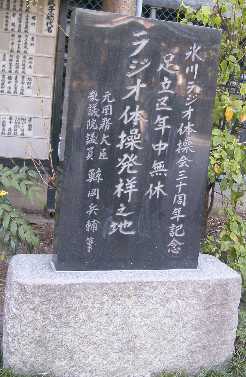 氷川ラジオ体操会三十周年記念
足立区年中無休
ラジオ体操発祥之地
元国務大臣
衆議院議員 鯨岡兵輔 筆